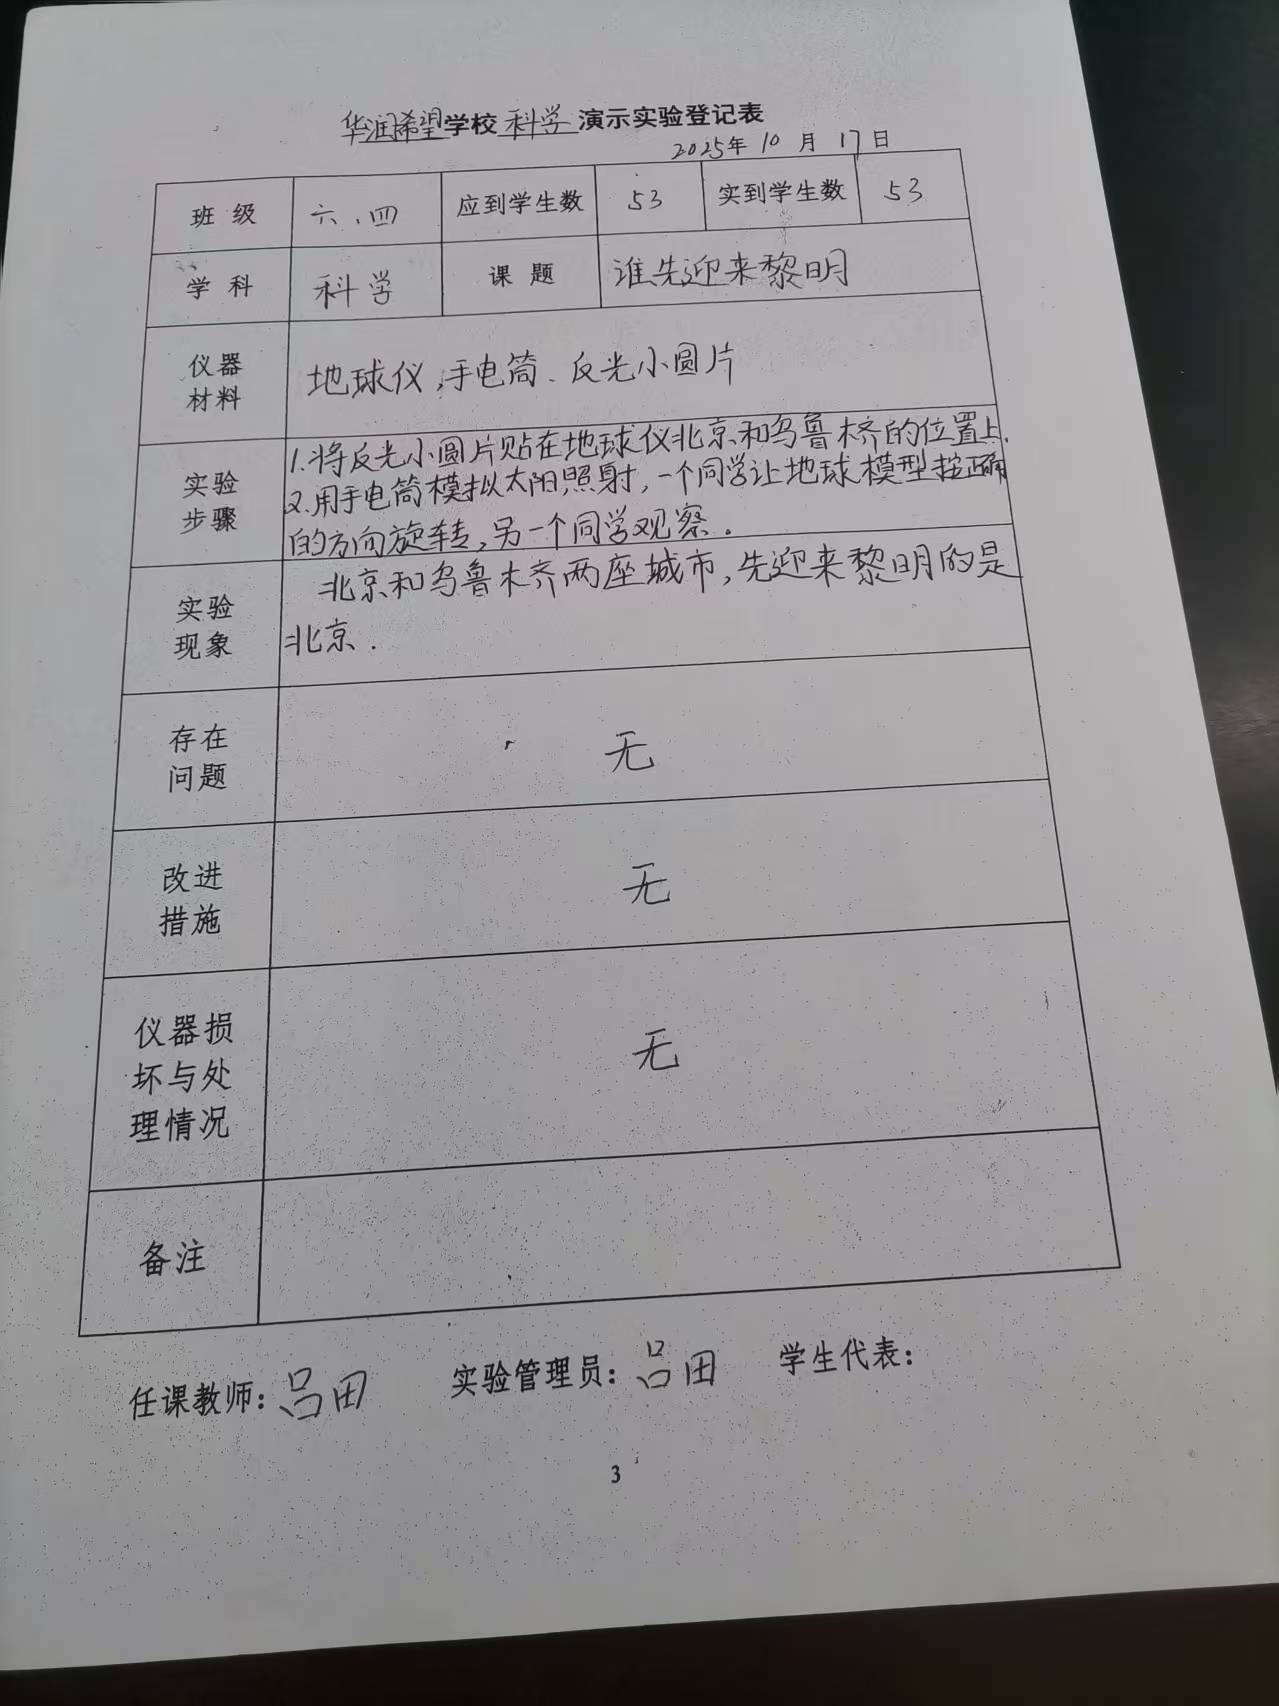 华润希望学校科学演示实验登记表
2025年10月17日
班级 六.四 应到学生数 53 实到学生数 53
学科 科学 课题 谁先迎来黎明
仪器
材料
地球仪,手电筒、反光小圆片
实验
步骤
1.将反光小圆片贴在地球仪北京和乌鲁木齐的位置上.
2.用手电筒模拟太阳照射,一个同学让地球模型按正确
的方向旋转,另一个同学观察.
实验
现象
北京和乌鲁木齐两座城市,先迎来黎明的是
北京.
存在
问题
无
改进
措施
无
仪器损
坏与处
理情况
无
备注
任课教师:吕田 实验管理员:吕田 学生代表:
3